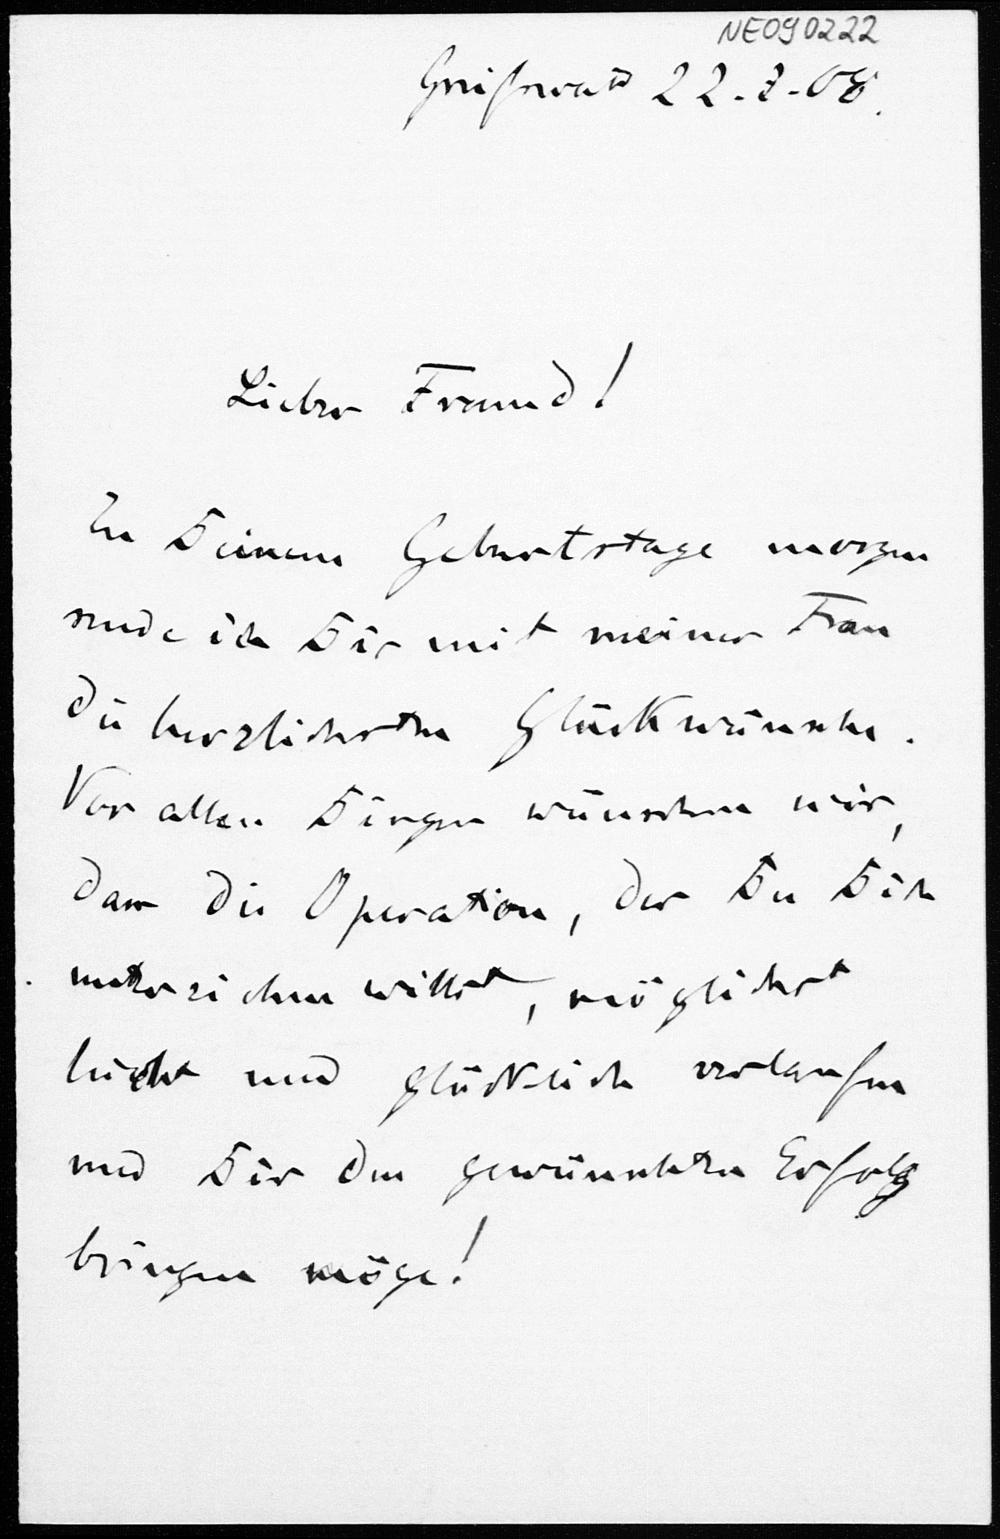 NE090222
Greifswald 22.2.08.
Lieber Freund!
Zu Deinem Geburtstage morgen
sende ich Dir mit meiner Frau
die herzlichsten Glückwünsche.
Vor allen Dingen wünschen wir,
dass die Operation, der Du Dich
unterziehen willst, möglichst
leicht und glücklich verlaufen
und Dir den gewünschten Erfolg
bringen möge!